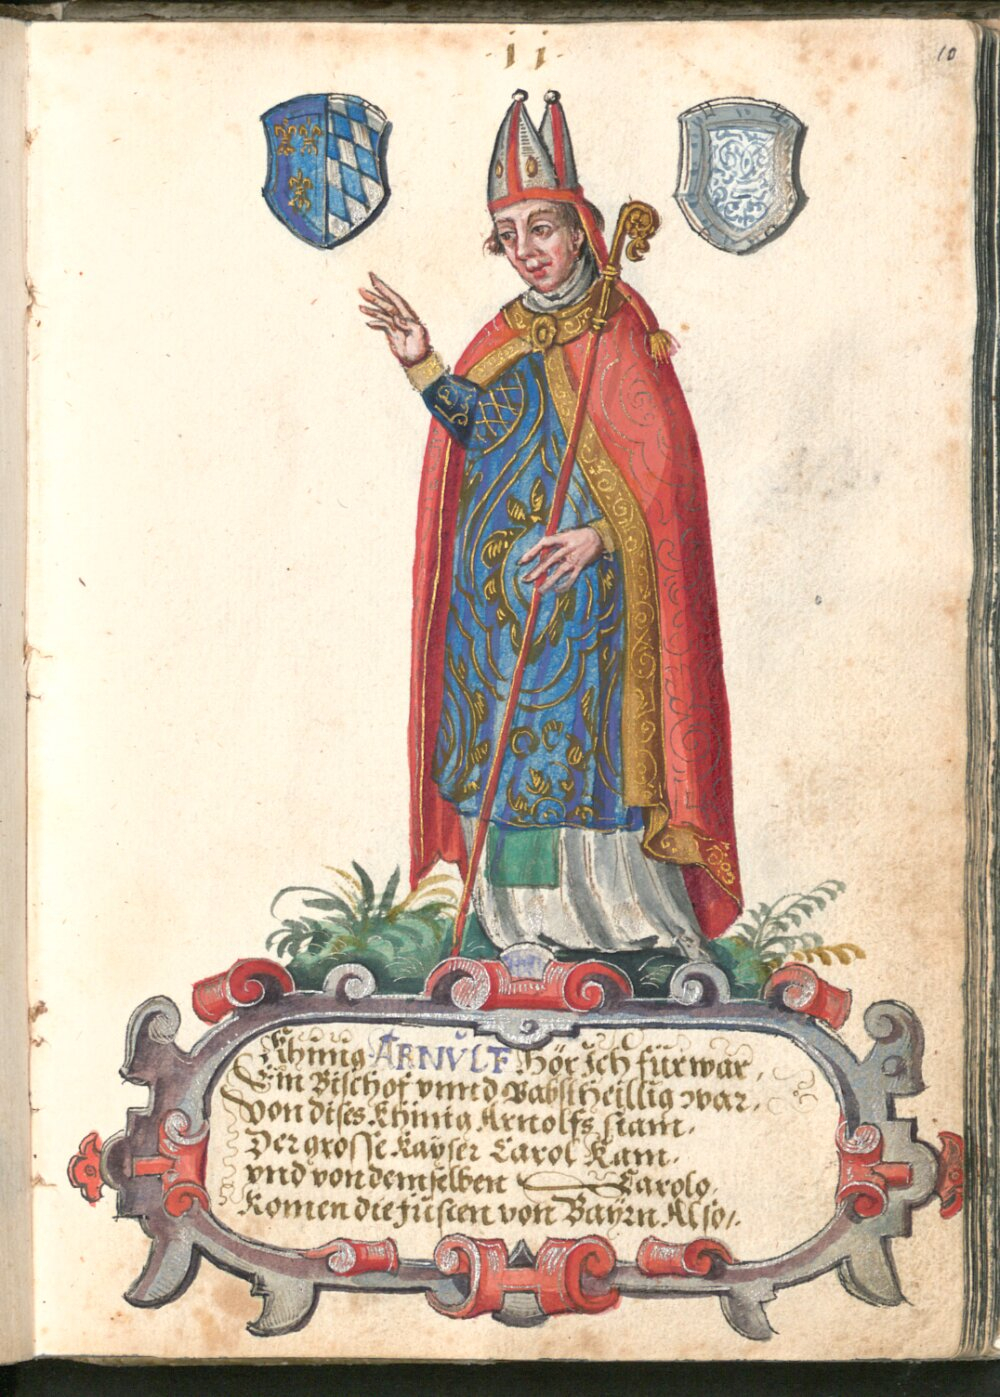 ·11·
10
Khinig ARNVLF Hör Ich für war,
Ein Bischof vnnd Babst Heillig war,
Von dises Khinig Arnolfs stam.
Der grosse Kayser Carol Kam.
vnd von demselben Carolo,
Komen die füsten von Bayrn Also/.